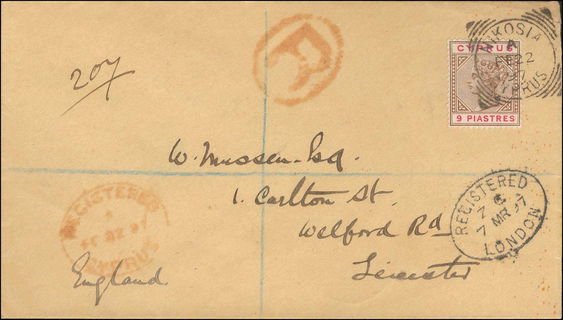 207
R
NIKOSIA
A
FE 22
97
CYPRUS
CYPRUS
9 PIASTRES
W. Mussen Esq.
1. Carlton St.
Welford Rd
Leicester
England
REGISTERED
FE 22 97
CYPRUS
REGISTERED
7 MR 97
LONDON